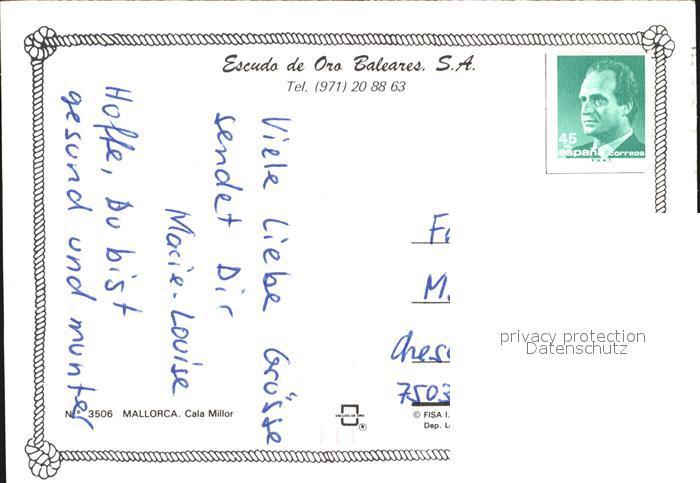 Escudo de Oro Baleares, S.A.
Tel. (971) 20 88 63
45
españa correos
Viele Liebe Grüsse
sendet Dir
Marie-Louise
Hoffe, Du bist
gesund und munter
F
M.
Ches
7503
privacy protection
Datenschutz
N.º 3506 MALLORCA. Cala Millor
ESCUDO DE ORO
®
© FISA I.
Dep. L